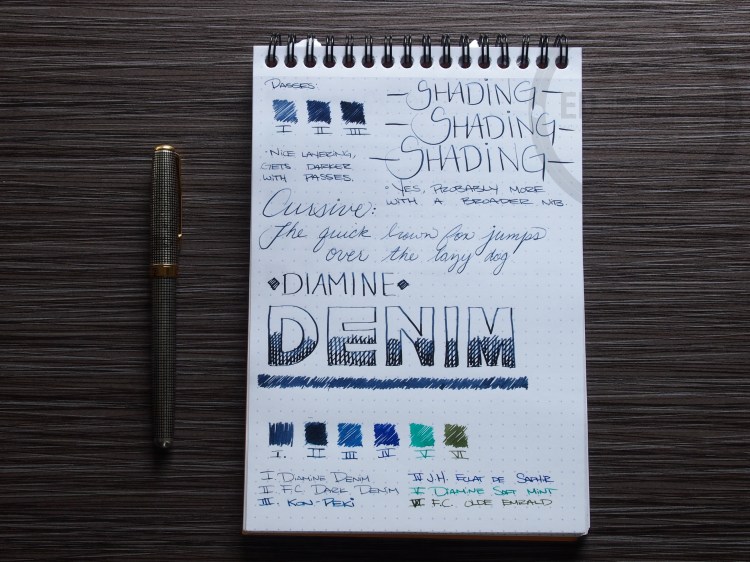 PASSES:
I II III
· NICE LAYERING,
GETS DARKER
WITH PASSES.
– SHADING –
– SHADING –
– SHADING –
· YES, PROBABLY MORE
WITH A BROADER NIB.
Cursive:
The quick brown fox jumps
over the lazy dog
DIAMINE
DENIM
I. II III IV V VI
I. DIAMINE DENIM
II F.C. DARK DENIM
III. KON-PEKI
IV J.H. ECLAT DE SAPHIR
V DIAMINE SOFT MINT
VI F.C. OLDE EMRALD